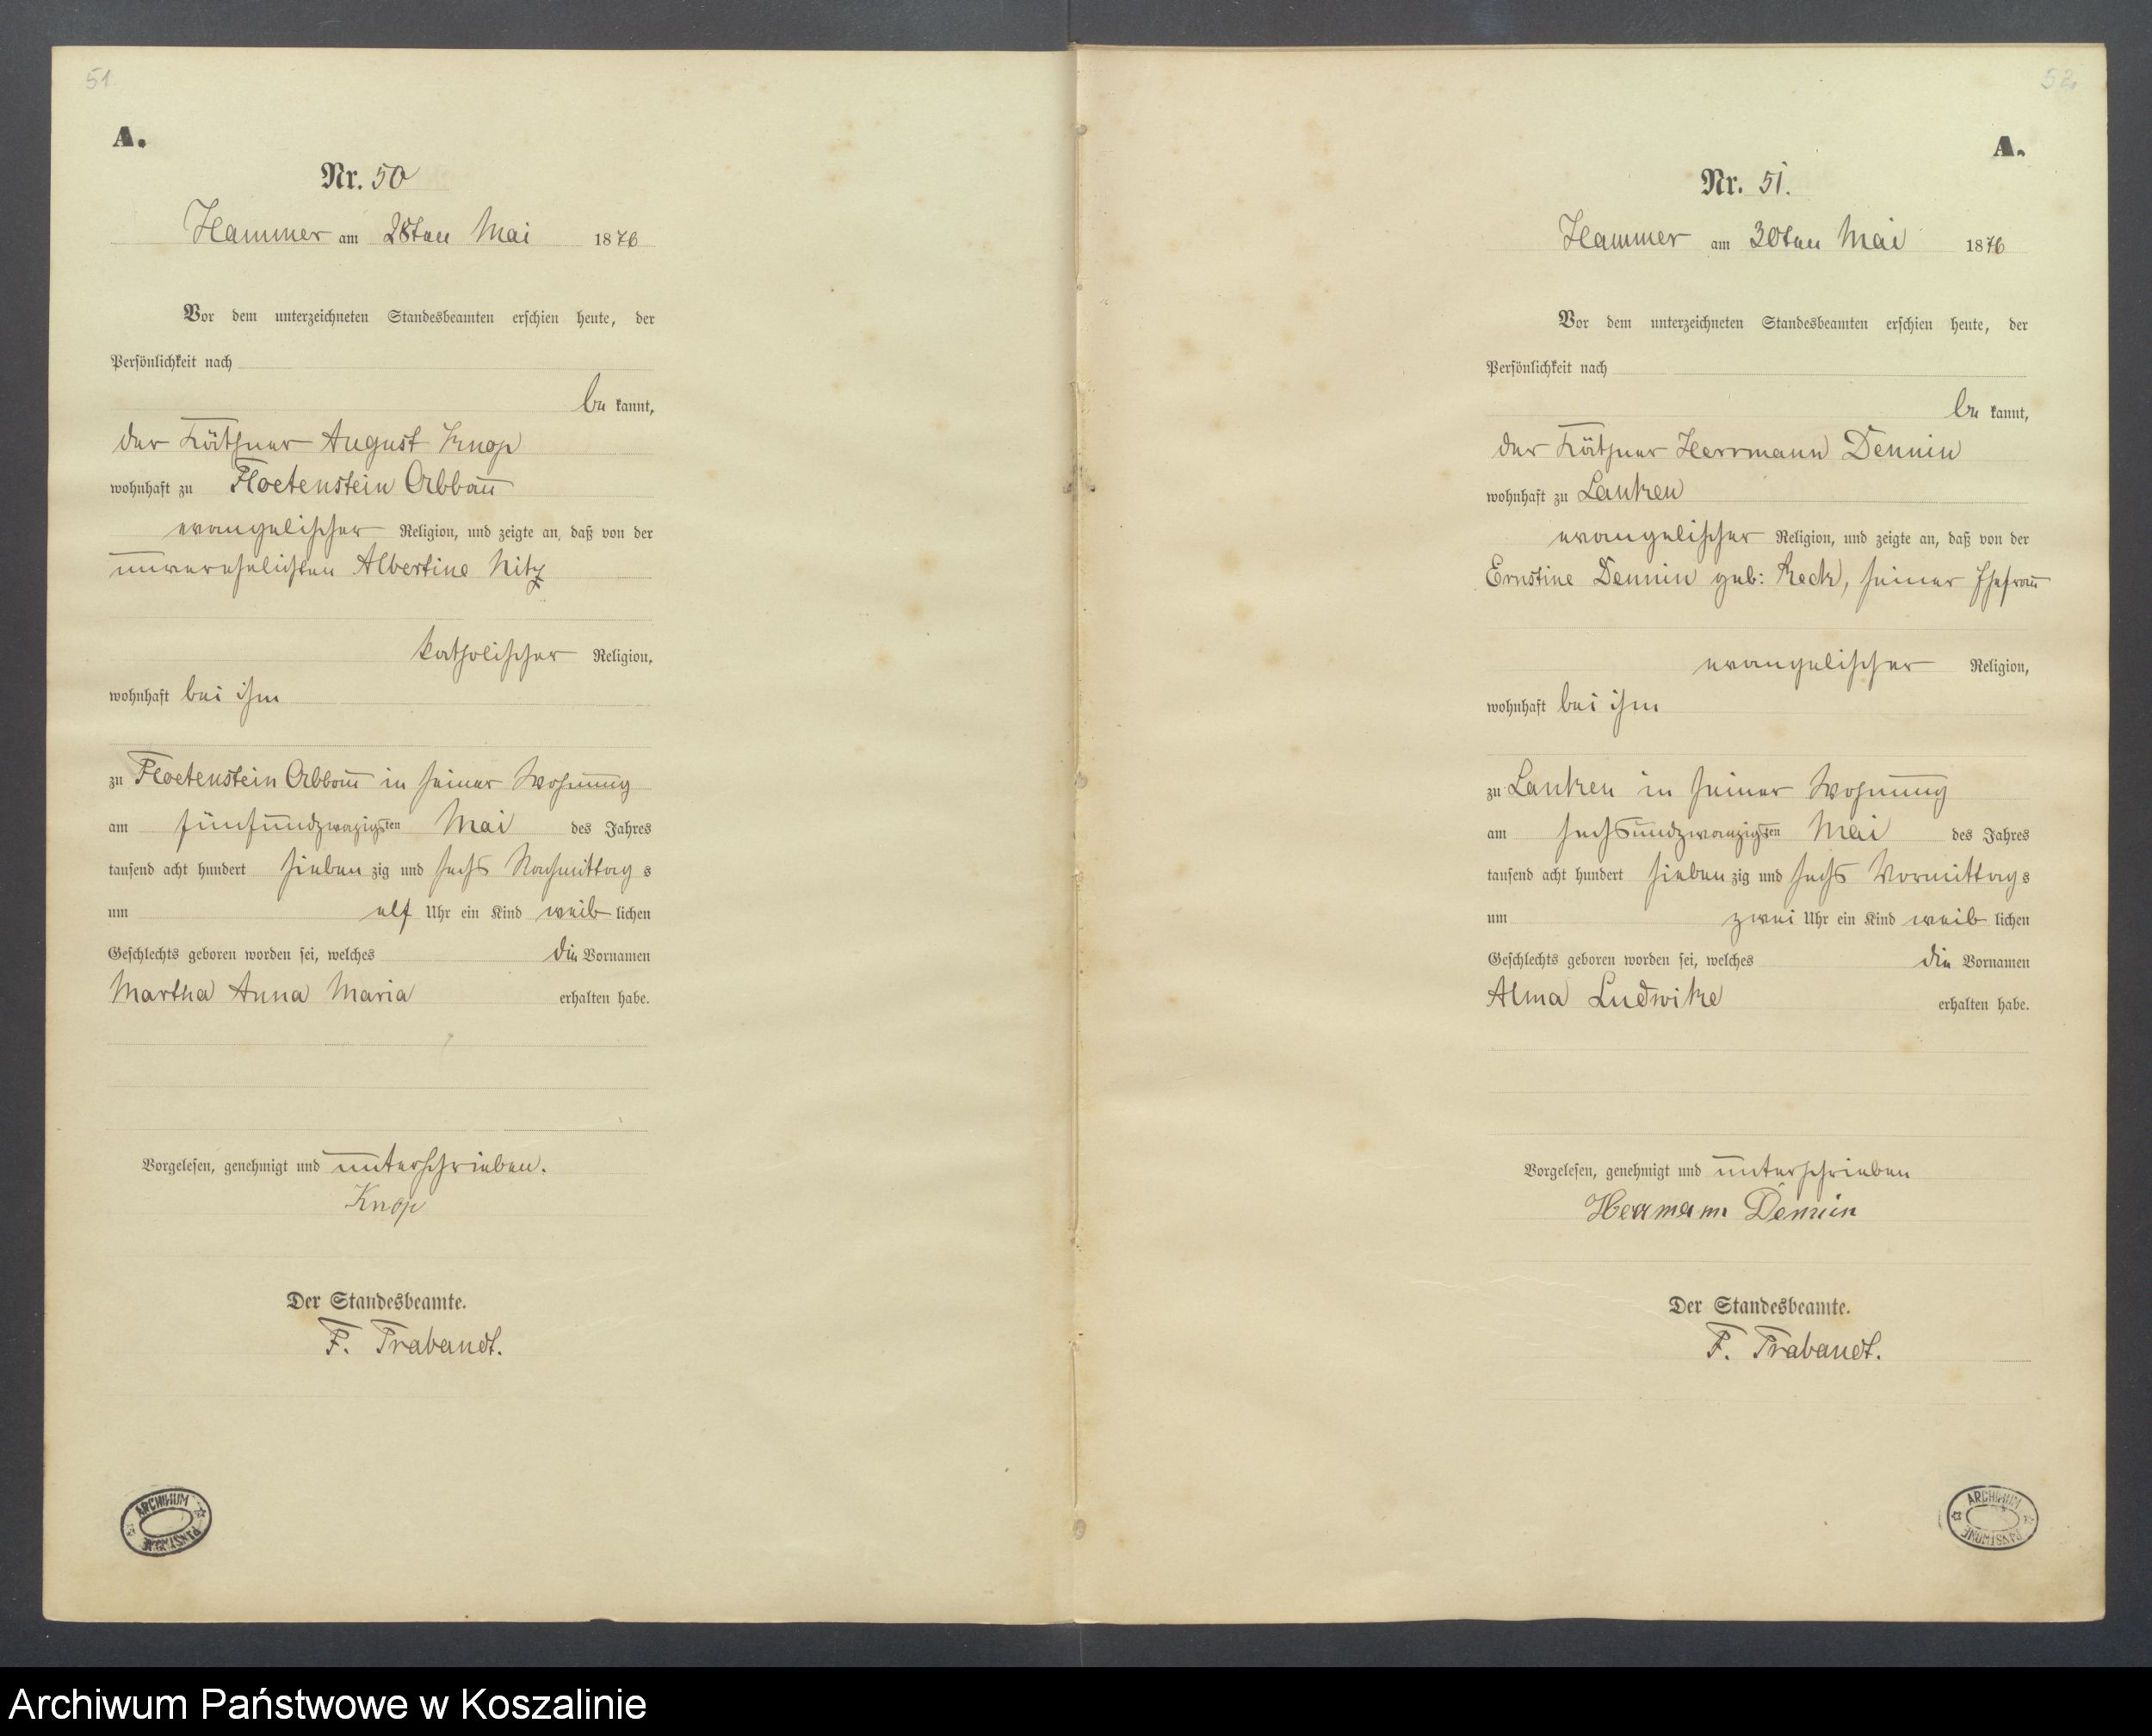 51
A.
Nr. 50
Hammer am 28ten Mai 1876
Vor dem unterzeichneten Standesbeamten erschien heute, der
Persönlichkeit nach
be kannt,
der Käthner August Knop
wohnhaft zu Floetenstein Abbau
evangelischer Religion, und zeigte an, daß von der
unverehelichten Albertine Nitz
katholischer Religion,
wohnhaft bei ihm
zu Floetenstein Abbau in seiner Wohnung
am fünfundzwazigsten Mai des Jahres
tausend acht hundert sieben zig und sechs Nachmittag s
um elf Uhr ein Kind weib lichen
Geschlechts geboren worden sei, welches die Vornamen
Martha Anna Maria erhalten habe.
Vorgelesen, genehmigt und unterschrieben.
Knop
Der Standesbeamte.
F. Trabandt.
ARCHIWUM PAŃSTWOWE
52
A.
Nr. 51.
Hammer am 30ten Mai 1876
Vor dem unterzeichneten Standesbeamten erschien heute, der
Persönlichkeit nach
be kannt,
der Käthner Herrmann Demin
wohnhaft zu Lanken
evangelischer Religion, und zeigte an, daß von der
Ernstine Demin geb: Reck, seiner Ehefrau
evangelischer Religion,
wohnhaft bei ihm
zu Lanken in seiner Wohnung
am sechsundzwanzigsten Mai des Jahres
tausend acht hundert sieben zig und sechs Vormittag s
um zwei Uhr ein Kind weib lichen
Geschlechts geboren worden sei, welches die Vornamen
Alma Ludwike erhalten habe.
Vorgelesen, genehmigt und unterschrieben
Herrmann Demin
Der Standesbeamte.
F. Trabandt.
ARCHIWUM PAŃSTWOWE
Archiwum Państwowe w Koszalinie